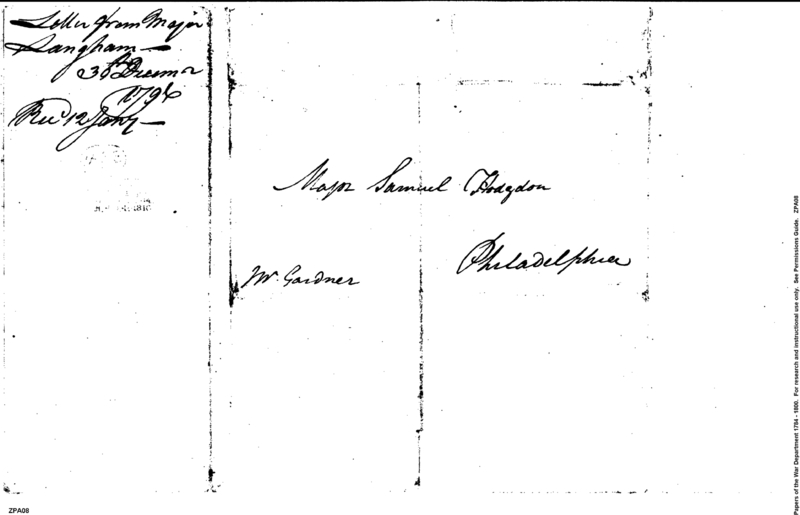 Letter from Major
Langham —
30th Decemr
179
Rec'd 12 Jany —
Major Samuel Hodgdon
Philadelphia
Mr. Gardner
ZPA08
Papers of the War Department 1784 - 1800. For research and instructional use only. See Permissions Guide. ZPA08